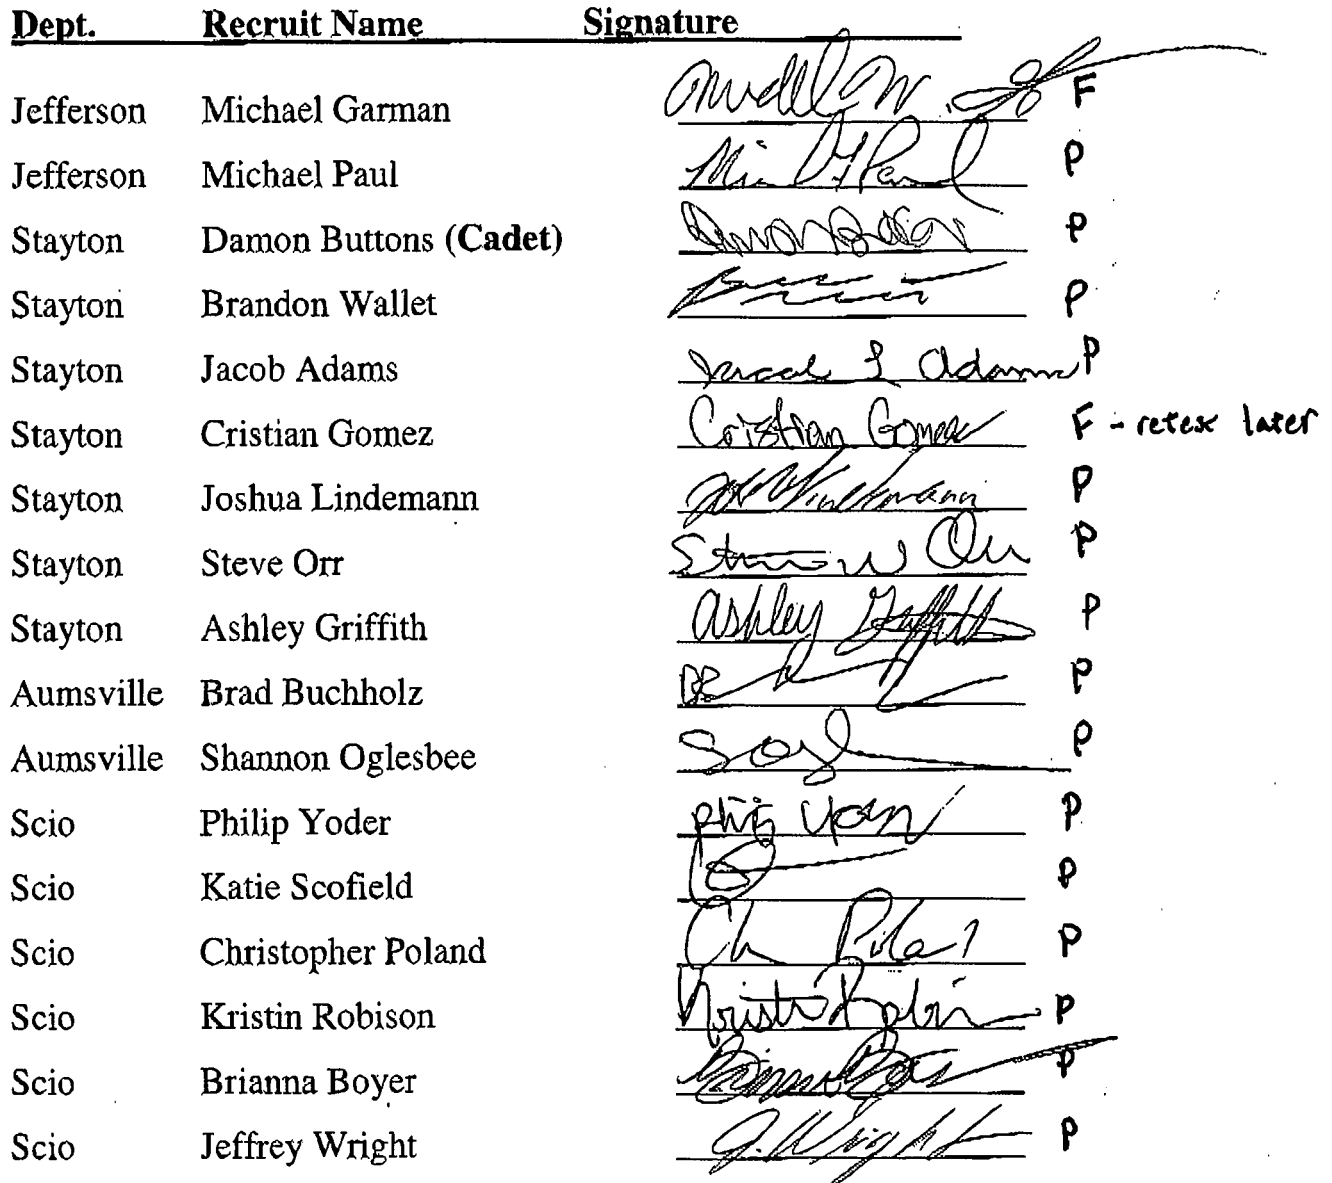 Dept. Recruit Name Signature
Jefferson Michael Garman F
Jefferson Michael Paul P
Stayton Damon Buttons (Cadet) P
Stayton Brandon Wallet P
Stayton Jacob Adams Jacob L Adams P
Stayton Cristian Gomez Cristian Gomez F - retest later
Stayton Joshua Lindemann P
Stayton Steve Orr P
Stayton Ashley Griffith Ashley Griffith P
Aumsville Brad Buchholz P
Aumsville Shannon Oglesbee P
Scio Philip Yoder P
Scio Katie Scofield P
Scio Christopher Poland P
Scio Kristin Robison P
Scio Brianna Boyer P
Scio Jeffrey Wright J. Wright P